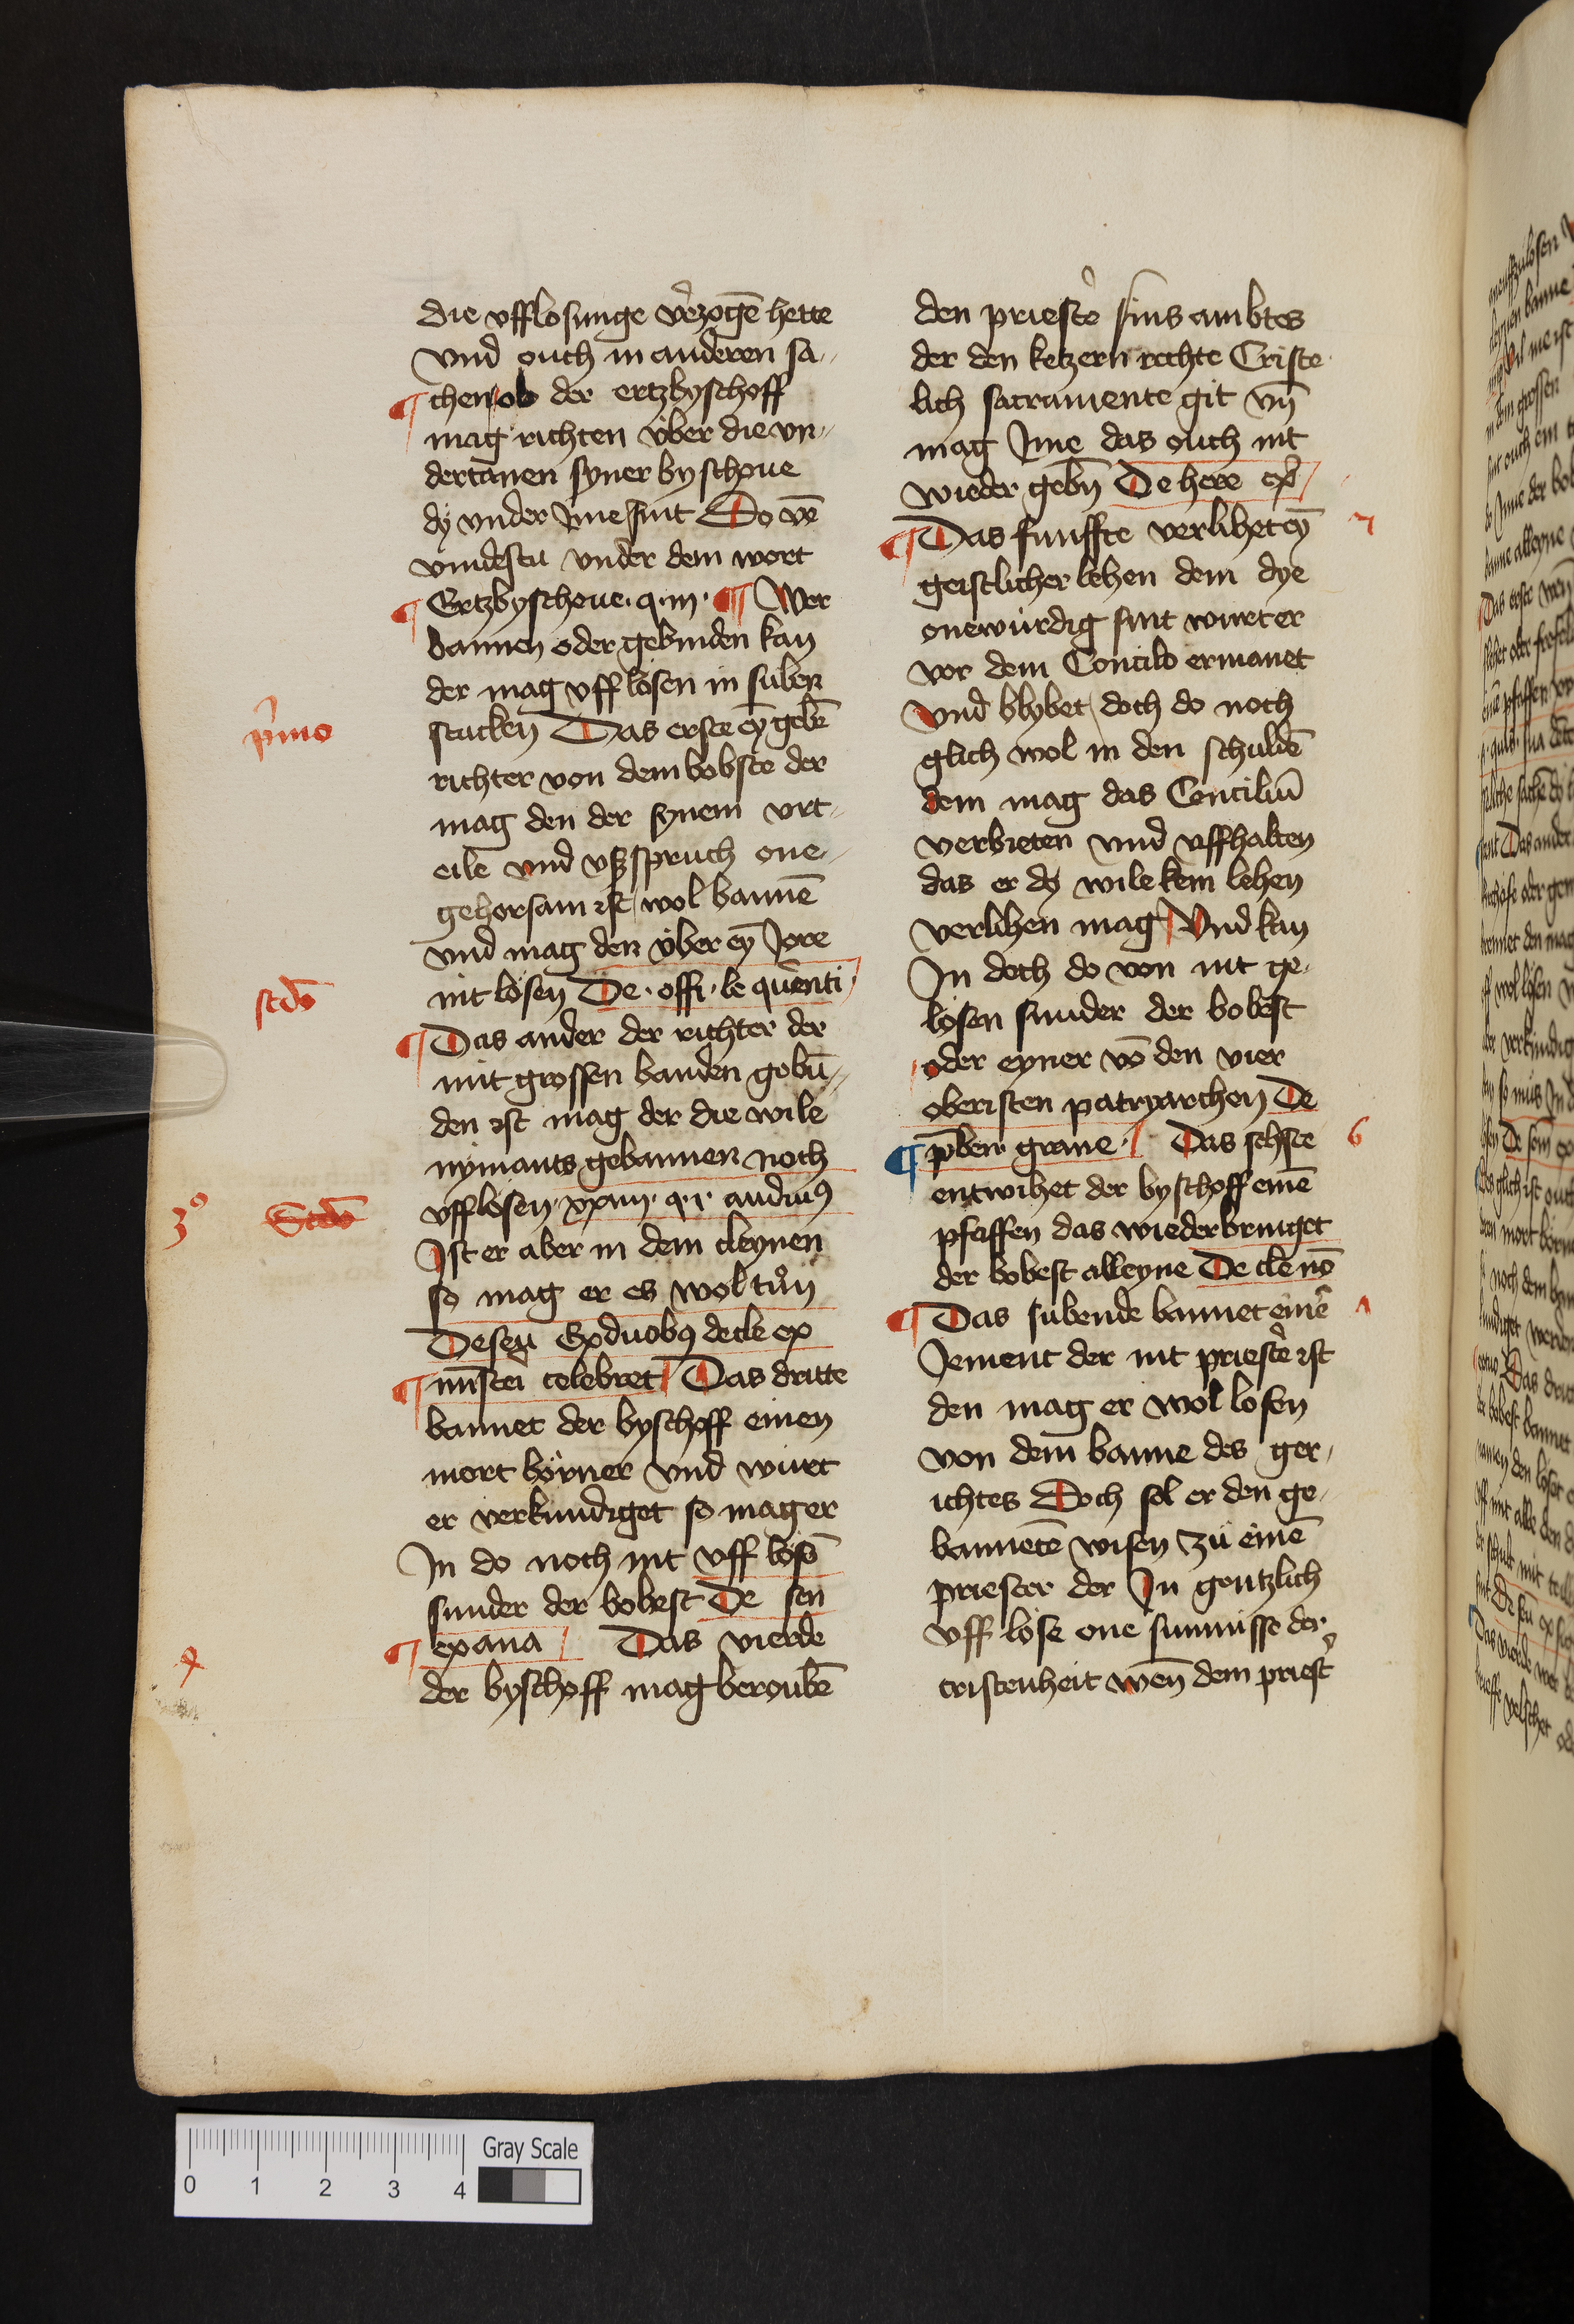 die vfflosunge v̉zogē hette
vnd ouch in anderen sa-
¶ chen ob der ertzbyschoff
mag richten v̈ber die vn-
dertanen syner byschoue
dÿ vnder Jme sint So vē
vindestu vnder dem wort
¶ Ertzbyschoue · q · iii · ¶ Wer
bannen oder gebinden kan
der mag vff lösen in süben
stucken Das erste eȳ gebē
richter von dem bobste der
mag den der synem vrt-
eile vnd vßspruch one-
gehorsam ist wol bannē
vnd mag den v̈ber eȳ Jore
nit lösen De · offi · le quēnti
¶ Das ander der richter der
mit grossen banden gebū-
den ist mag der die wile
nÿmants gebannen noch
vfflosen · xxiiii · q · i · audiuiꝰ
Jst er aber in dem cleynen
so mag er es wol tůn
De sen̄ Ex duobꝰ de cle ex
¶ mīstri celebret Das dritte
bannet der byschoff einen
mort börner vnd würt
er verkundiget so mag er
Jn do noch nit vff lösē
sunder der bobest De sen
¶ ex ana Das vierde
der byschoff mag beroubē
p̉mo
scdō
3º Scdō
4
den priest̉ sins ambtes
der den ketzern rechte Criste
lich sacramente git vn̄
mag Jme das ouch nit
wieder gebn̄ De here ex
¶ Das funffte verlihet eȳ
geistlicher lehen dem dye
onewürdig sint wurt er
vor dem Concilo ermanet
vnd blybet doch do noch
glich wol in den schuldē
dem mag das Conciliū
verbieten vnd vffhalten
das er dÿ wile kein lehen
verlihen mag Vnd kan
Jn doch do von nit ge-
lösen sunder der bobest
oder eyner vō den vier
obersten patryarchen De
¶ p̄ben graue · Das sehste
entwihet der byschoff einē
pfaffen das wiederbringet
der bobest alleyne De cle nō
¶ Das subende bannet einē
Jement der nit priest̉ ist
den mag er wol losen
von dem banne des ger-
ichtes Doch sol er den ge-
bannetē wisen zü einē
priester der Jn gentzlich
vff löse one sunnisse der
cristenheit wen̄ dem priest̉
6